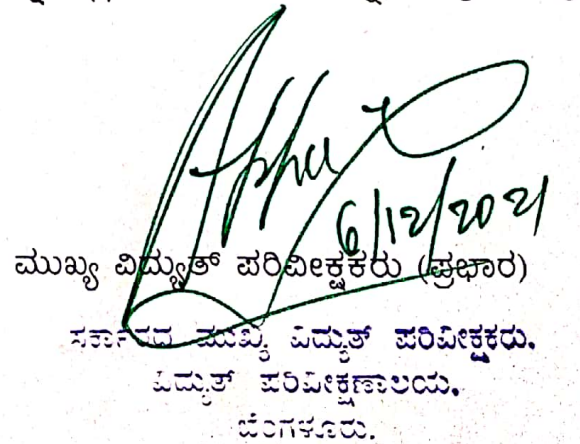 6/12/2021
ಮುಖ್ಯ ವಿದ್ಯುತ್ ಪರಿವೀಕ್ಷಕರು (ಪ್ರಭಾರ)
ಸರ್ಕಾರದ ಮುಖ್ಯ ವಿದ್ಯುತ್ ಪರಿವೀಕ್ಷಕರು.
ವಿದ್ಯುತ್ ಪರಿವೀಕ್ಷಣಾಲಯ.
ಬೆಂಗಳೂರು.